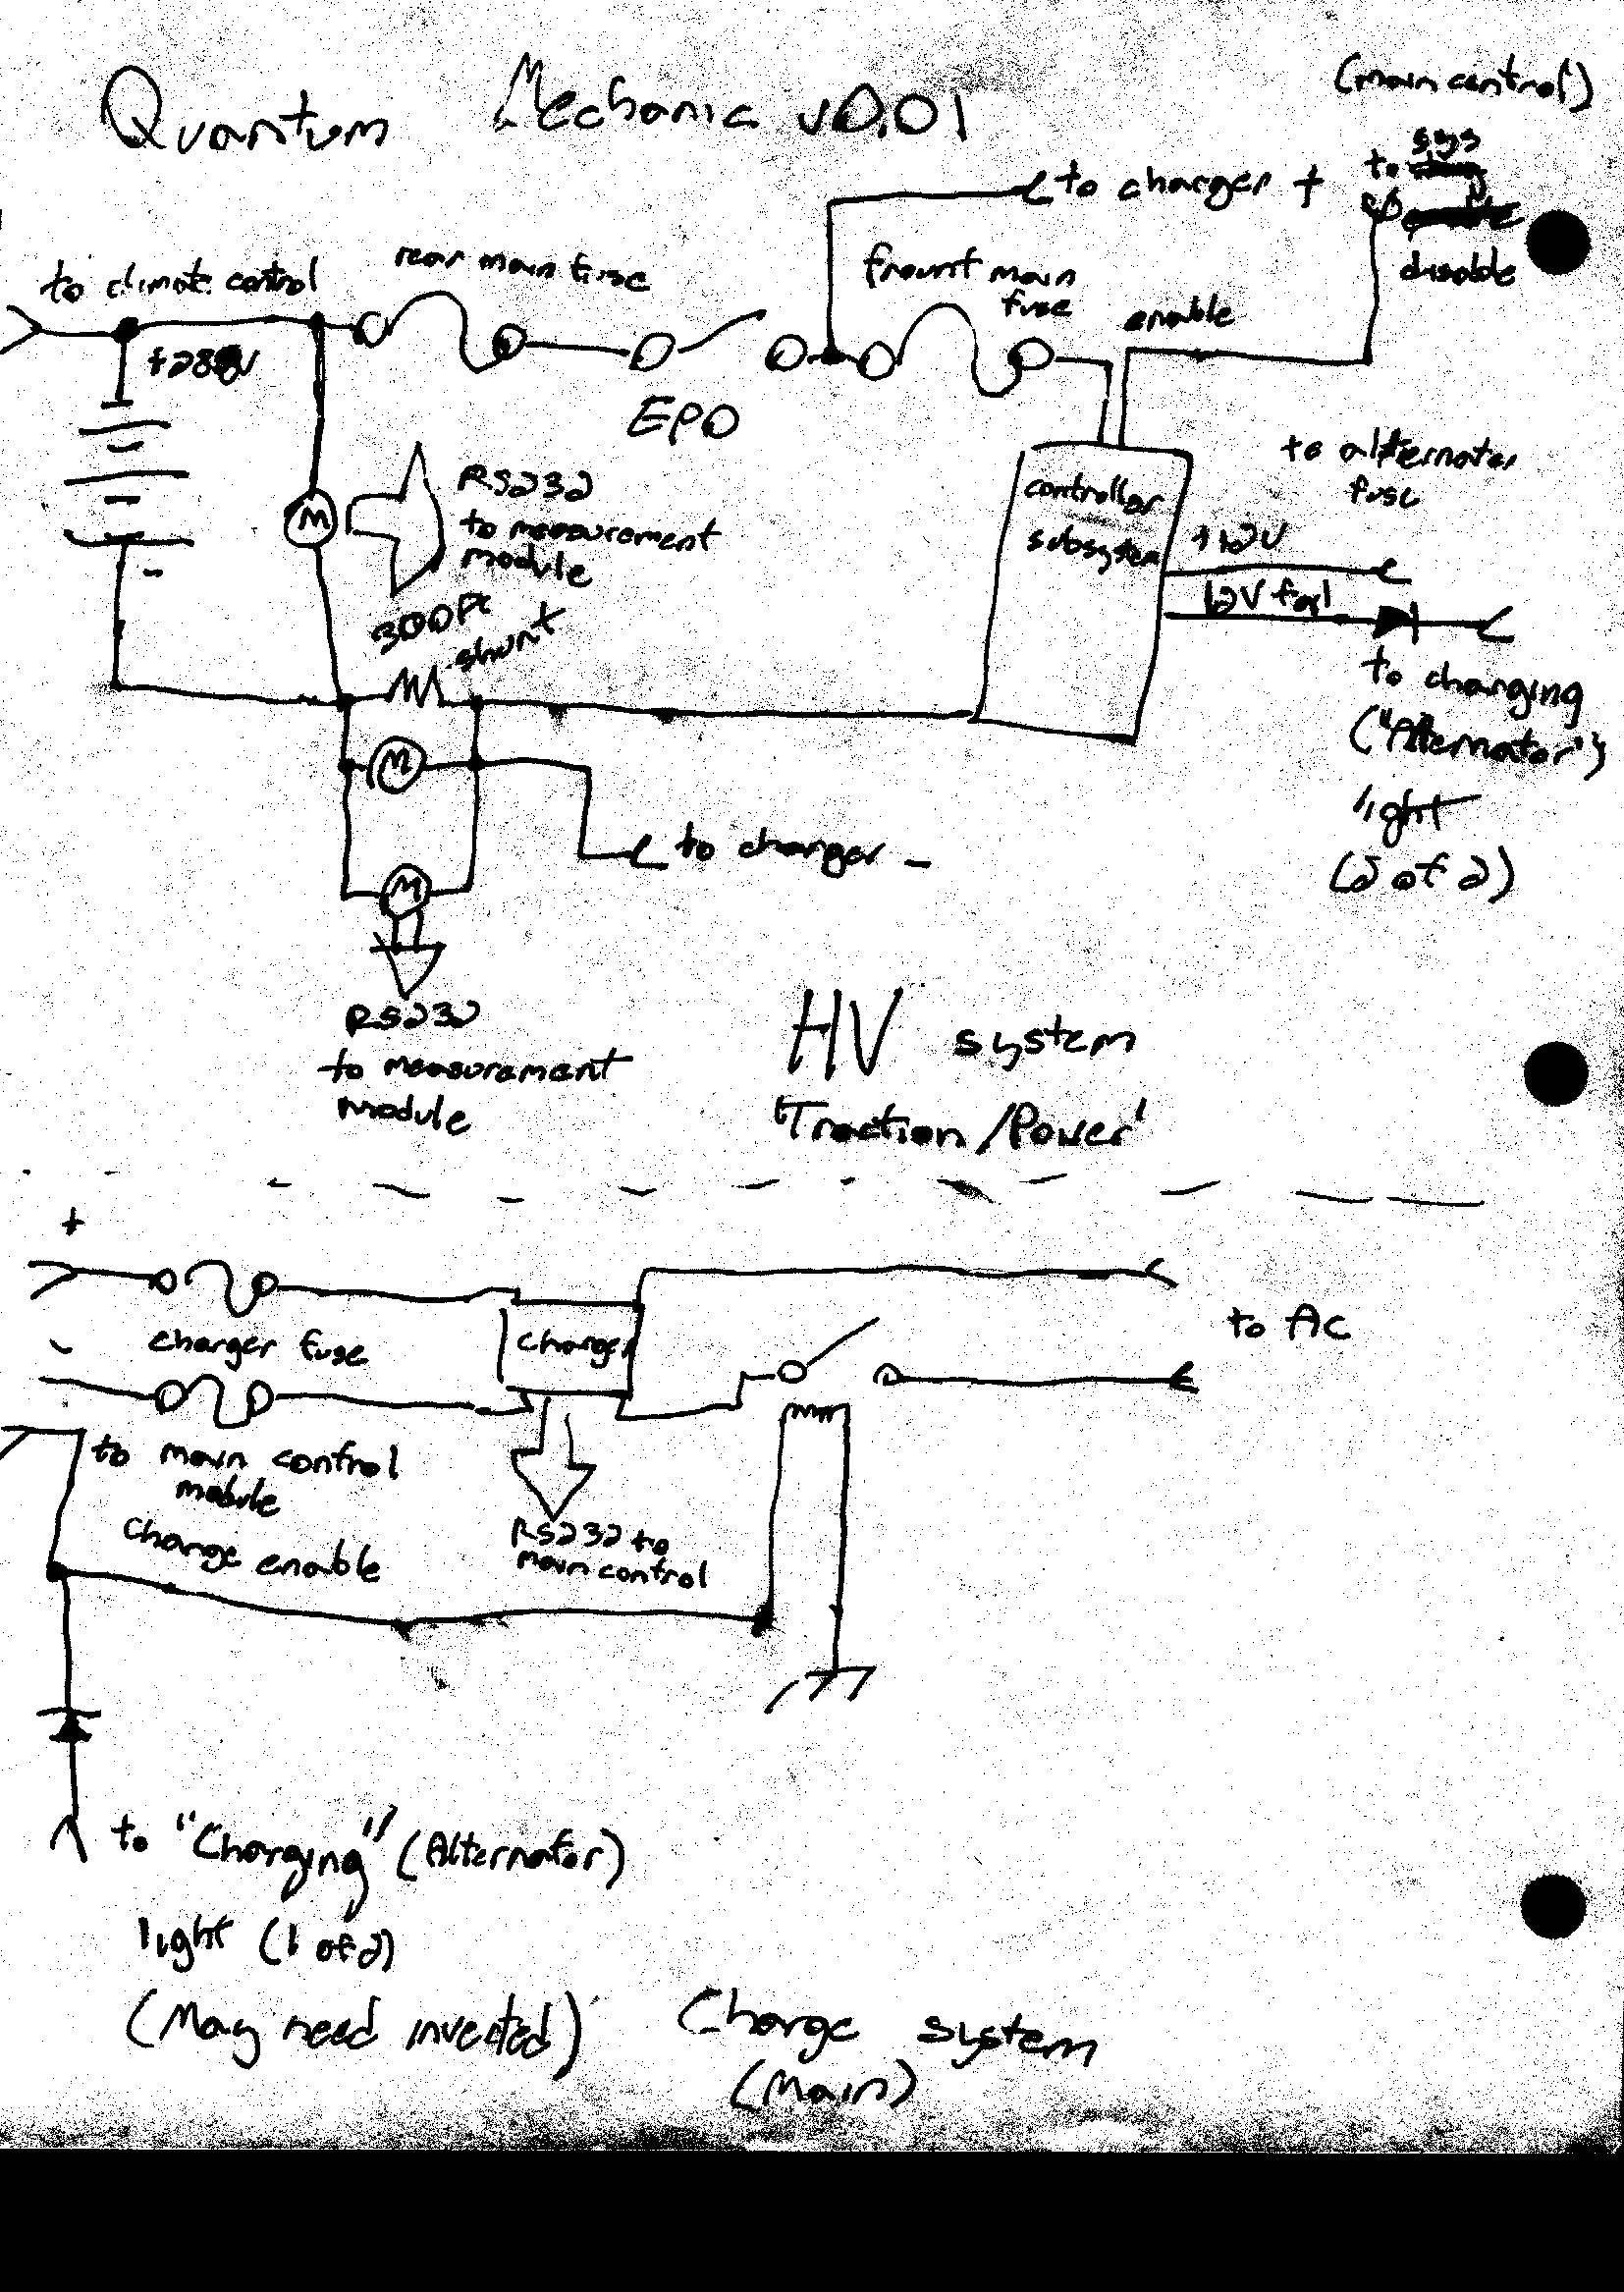 Quantum Mechanic v0.01
(main control)
to sys
disable
to charger +
to climate control
rear main fuse
frount main
fuse
enable
+288V
EPO
RS232
to measurement
module
300A
shunt
controller
subsystem
to alternator
fuse
+12V
12V fail
to charging
("Alternator")
light
(2 of 2)
-
M
M
M
to charger -
RS232
to measurement
module
HV system
'Traction/Power'
+
-
charger fuse
charger
to AC
to main control
module
charge enable
RS232 to
main control
to "Charging" (Alternator)
light (1 of 2)
(May need inverted)
Charge system
(Main)